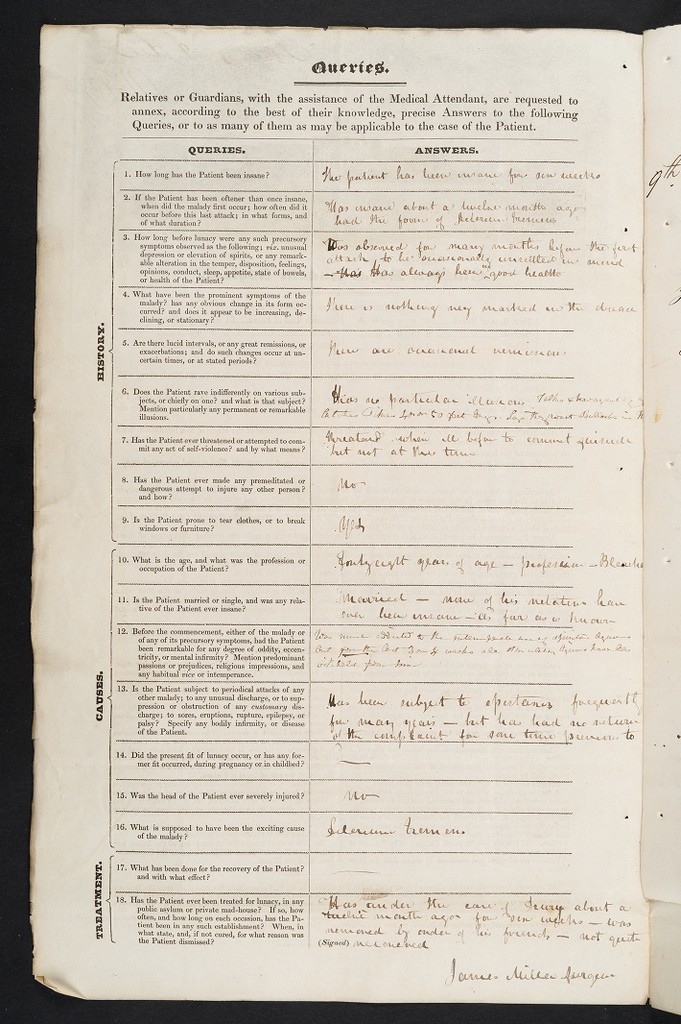 Queries.
Relatives or Guardians, with the assistance of the Medical Attendant, are requested to
annex, according to the best of their knowledge, precise Answers to the following
Queries, or to as many of them as may be applicable to the case of the Patient.
QUERIES.
ANSWERS.
HISTORY.
1. How long has the Patient been insane?
The patient has been insane for six weeks
2. If the Patient has been oftener than once insane,
when did the malady first occur; how often did it
occur before this last attack; in what forms, and
of what duration?
Was insane about a twelve months ago
had the form of Delerium Tremens
3. How long before lunacy were any such precursory
symptoms observed as the following; viz. unusual
depression or elevation of spirits, or any remark-
able alteration in the temper, disposition, feelings,
opinions, conduct, sleep, appetite, state of bowels,
or health of the Patient?
Was observed for many months before the first
attack, to be occasionally unsettled in mind
– Has always been in good health
4. What have been the prominent symptoms of the
malady? has any obvious change in its form oc-
curred? and does it appear to be increasing, de-
clining, or stationary?
There is nothing very marked in the disease
5. Are there lucid intervals, or any great remissions, or
exacerbations; and do such changes occur at un-
certain times, or at stated periods?
There are occasional remissions
6. Does the Patient rave indifferently on various sub-
jects, or chiefly on one? and what is that subject?
Mention particularly any permanent or remarkable
illusions.
Has no particular illusions Talks
7. Has the Patient ever threatened or attempted to com-
mit any act of self-violence? and by what means?
Threatened when ill before to commit suicide
but not at this time
8. Has the Patient ever made any premeditated or
dangerous attempt to injure any other person?
and how?
No
9. Is the Patient prone to tear clothes, or to break
windows or furniture?
Yes
CAUSES.
10. What is the age, and what was the profession or
occupation of the Patient?
Forty eight years of age – profession –
11. Is the Patient married or single, and was any rela-
tive of the Patient ever insane?
Married – none of his relations have
ever been insane – as far as is known
12. Before the commencement, either of the malady or
of any of its precursory symptoms, had the Patient
been remarkable for any degree of oddity, eccen-
tricity, or mental infirmity? Mention predominant
passions or prejudices, religious impressions, and
any habitual vice or intemperance.
Was much addicted to the intemperate use of
but for the last weeks
13. Is the Patient subject to periodical attacks of any
other malady; to any unusual discharge, or to sup-
pression or obstruction of any customary dis-
charge; to sores, eruptions, rupture, epilepsy, or
palsy? Specify any bodily infirmity, or disease
of the Patient.
Has been subject to epistaxis frequently
for many years – but has had no return
of the complaint for some time previous to
14. Did the present fit of lunacy occur, or has any for-
mer fit occurred, during pregnancy or in childbed?
—
15. Was the head of the Patient ever severely injured?
No
16. What is supposed to have been the exciting cause
of the malady?
Delerium Tremens
TREATMENT.
17. What has been done for the recovery of the Patient?
and with what effect?
—
18. Has the Patient ever been treated for lunacy, in any
public asylum or private mad-house? If so, how
often, and how long on each occasion, has the Pa-
tient been in any such establishment? When, in
what state, and, if not cured, for what reason was
the Patient dismissed?
Was under the care of about a
twelve month ago for six weeks – was
removed by order of his friends – not quite
(Signed) recovered
James Miller Surgeon
9th